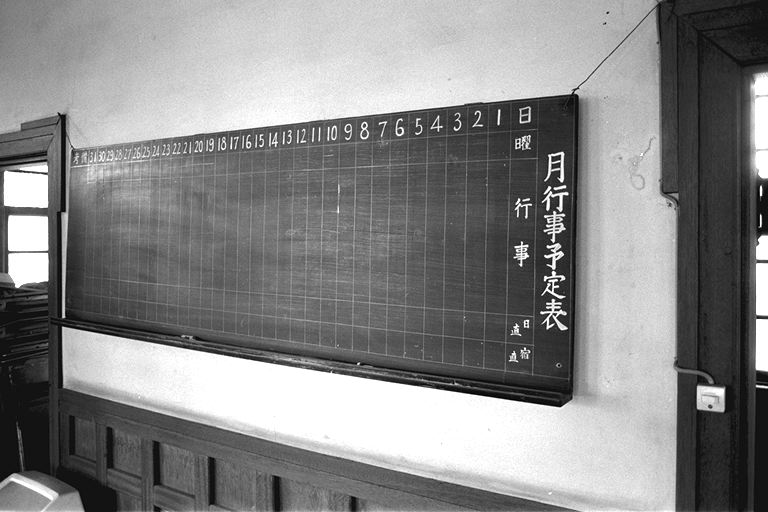 月行事予定表
日 1 2 3 4 5 6 7 8 9 10 11 12 13 14 15 16 17 18 19 20 21 22 23 24 25 26 27 28 29 30 31 備考
曜
行事
日直
宿直